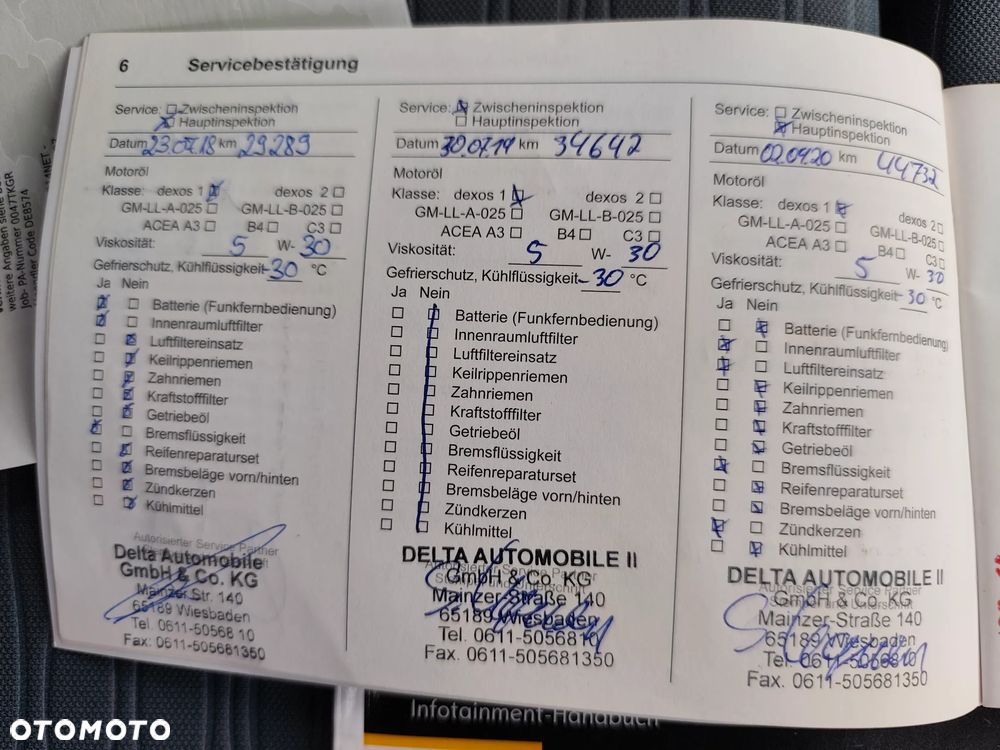 6 Servicebestätigung
Service: Zwischeninspektion
Hauptinspektion
Datum 23.07.18 km 29289
Motoröl
Klasse: dexos 1 dexos 2
GM-LL-A-025 GM-LL-B-025
ACEA A3 B4 C3
Viskosität: 5 W- 30
Gefrierschutz, Kühlflüssigkeit -30 °C
Ja Nein
Batterie (Funkfernbedienung)
Innenraumluftfilter
Luftfiltereinsatz
Keilrippenriemen
Zahnriemen
Kraftstofffilter
Getriebeöl
Bremsflüssigkeit
Reifenreparaturset
Bremsbeläge vorn/hinten
Zündkerzen
Kühlmittel
Autorisierter Service Partner
Delta Automobile
GmbH & Co. KG
Mainzer Str. 140
65189 Wiesbaden
Tel. 0611-50568 10
Fax: 0611-505681350
Service: Zwischeninspektion
Hauptinspektion
Datum 30.07.19 km 34642
Motoröl
Klasse: dexos 1 dexos 2
GM-LL-A-025 GM-LL-B-025
ACEA A3 B4 C3
Viskosität: 5 W- 30
Gefrierschutz, Kühlflüssigkeit -30 °C
Ja Nein
Batterie (Funkfernbedienung)
Innenraumluftfilter
Luftfiltereinsatz
Keilrippenriemen
Zahnriemen
Kraftstofffilter
Getriebeöl
Bremsflüssigkeit
Reifenreparaturset
Bremsbeläge vorn/hinten
Zündkerzen
Kühlmittel
DELTA AUTOMOBILE II
GmbH & Co. KG
Mainzer-Straße 140
65189 Wiesbaden
Tel. 0611-5056810
Fax. 0611-505681350
Service: Zwischeninspektion
Hauptinspektion
Datum 02.09.20 km 44732
Motoröl
Klasse: dexos 1 dexos 2
GM-LL-A-025 GM-LL-B-025
ACEA A3 B4 C3
Viskosität: 5 W- 30
Gefrierschutz, Kühlflüssigkeit -30 °C
Ja Nein
Batterie (Funkfernbedienung)
Innenraumluftfilter
Luftfiltereinsatz
Keilrippenriemen
Zahnriemen
Kraftstofffilter
Getriebeöl
Bremsflüssigkeit
Reifenreparaturset
Bremsbeläge vorn/hinten
Zündkerzen
Kühlmittel
DELTA AUTOMOBILE II
GmbH & Co. KG
Mainzer-Straße 140
65189 Wiesbaden
Tel. 0611-5056810
Fax. 0611-505681350
weitere Angaben siehe
Job- PA-Nummer 0047TKGR
Code DE8574
Infotainment-Handbuch
OTOMOTO